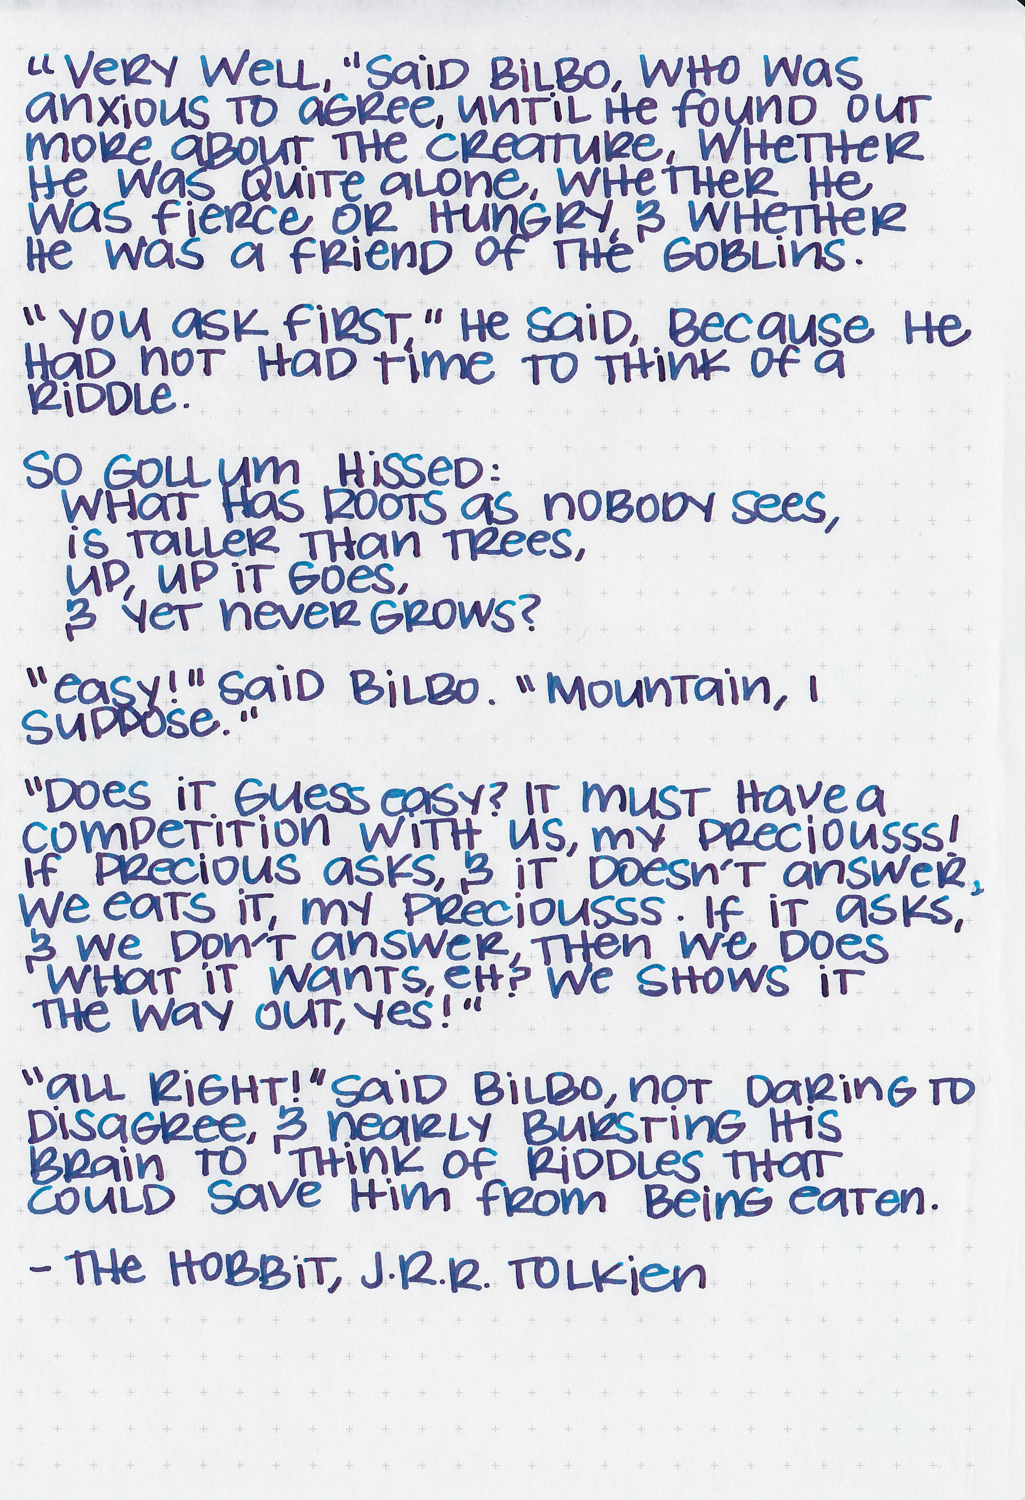 "Very well," said Bilbo, who was
anxious to agree, until he found out
more about the creature, whether
he was quite alone, whether he
was fierce or hungry, & whether
he was a friend of the goblins.
"You ask first," he said, because he
had not had time to think of a
riddle.
So Gollum hissed:
What has roots as nobody sees,
is taller than trees,
up, up it goes,
& yet never grows?
"Easy!" said Bilbo. "Mountain, I
suppose."
"Does it guess easy? It must have a
competition with us, my preciousss!
If precious asks, & it doesn't answer,
we eats it, my preciousss. If it asks,
& we don't answer, then we does
what it wants, eh? We shows it
the way out, yes!"
"All right!" said Bilbo, not daring to
disagree, & nearly bursting his
brain to think of riddles that
could save him from being eaten.
- The Hobbit, J.R.R. Tolkien